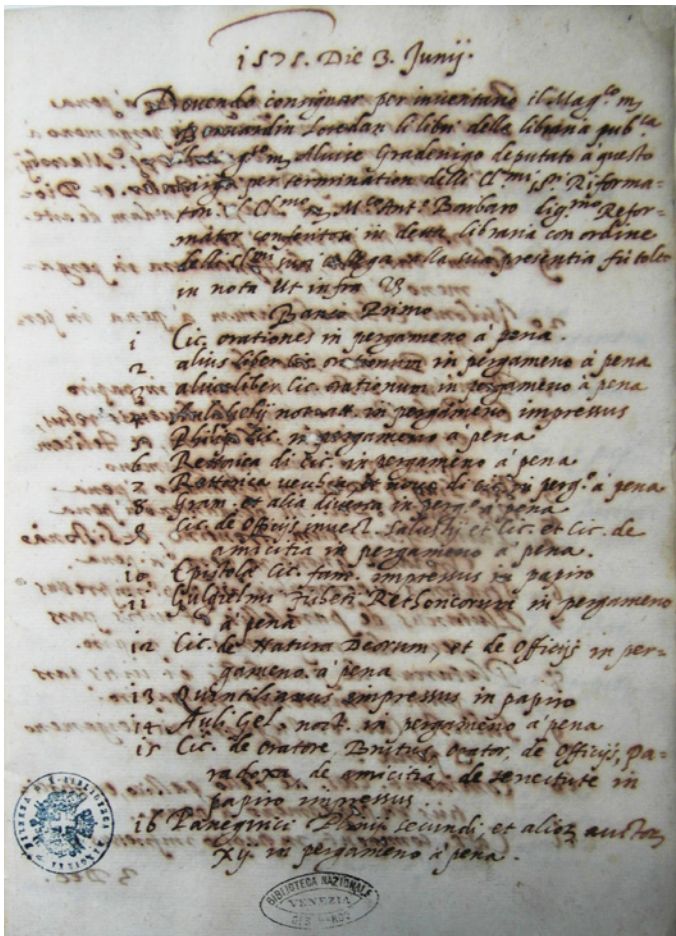 1575. Die 3. Junij.
Dovendo consignar per inventario il Mag.co m.
Bernardin Loredan li libri della libraria pub.ca
m. Alvise Gradenigo deputato à questo
per termination delli Cl.mi S.ri Riforma-
tori. Cl.mo m. M.c Ant.o Barbaro Refor-
mator in detta libraria con ordine
delli Cl.mi suoi alla sua presentia fù tolto
in nota Ut infra
Banco Primo
1 Cic. orationes in pergameno à pena.
2 alius liber Cic. orationum in pergameno à pena
3 alius liber Cic. orationum in pergameno à pena
4 Auli Gelij noct. att. in pergameno impressus
5 Philip. Cic. in pergameno à pena
6 Rettorica di Cic. in pergameno à pena
7 Rettorica di Cic. in perg.o à pena
8 Gram. et alia diversa in perg.o à pena
9 Cic. de Officijs invect. Salustij et Cic. et Cic. de
amicitia in pergameno à pena.
10 Epistole Cic. fam. impressus in papiro
11 Gulgielmi Rethoricorum in pergameno
à pena
12 Cic. de Natura Deorum, et de Officijs in per=
gameno à pena
13 Quintilianus impressus in papiro
14 Auli Gel. noct. in pergameno à pena
15 Cic. de Oratore, Brutus, Orator, de Officijs, Pa=
radoxa, de amicitia de senectute in
papiro impressus
16 Panegirici Plinij secundi, et
XII. in pergameno à pena.
BIBLIOTECA NAZIONALE
VENEZIA